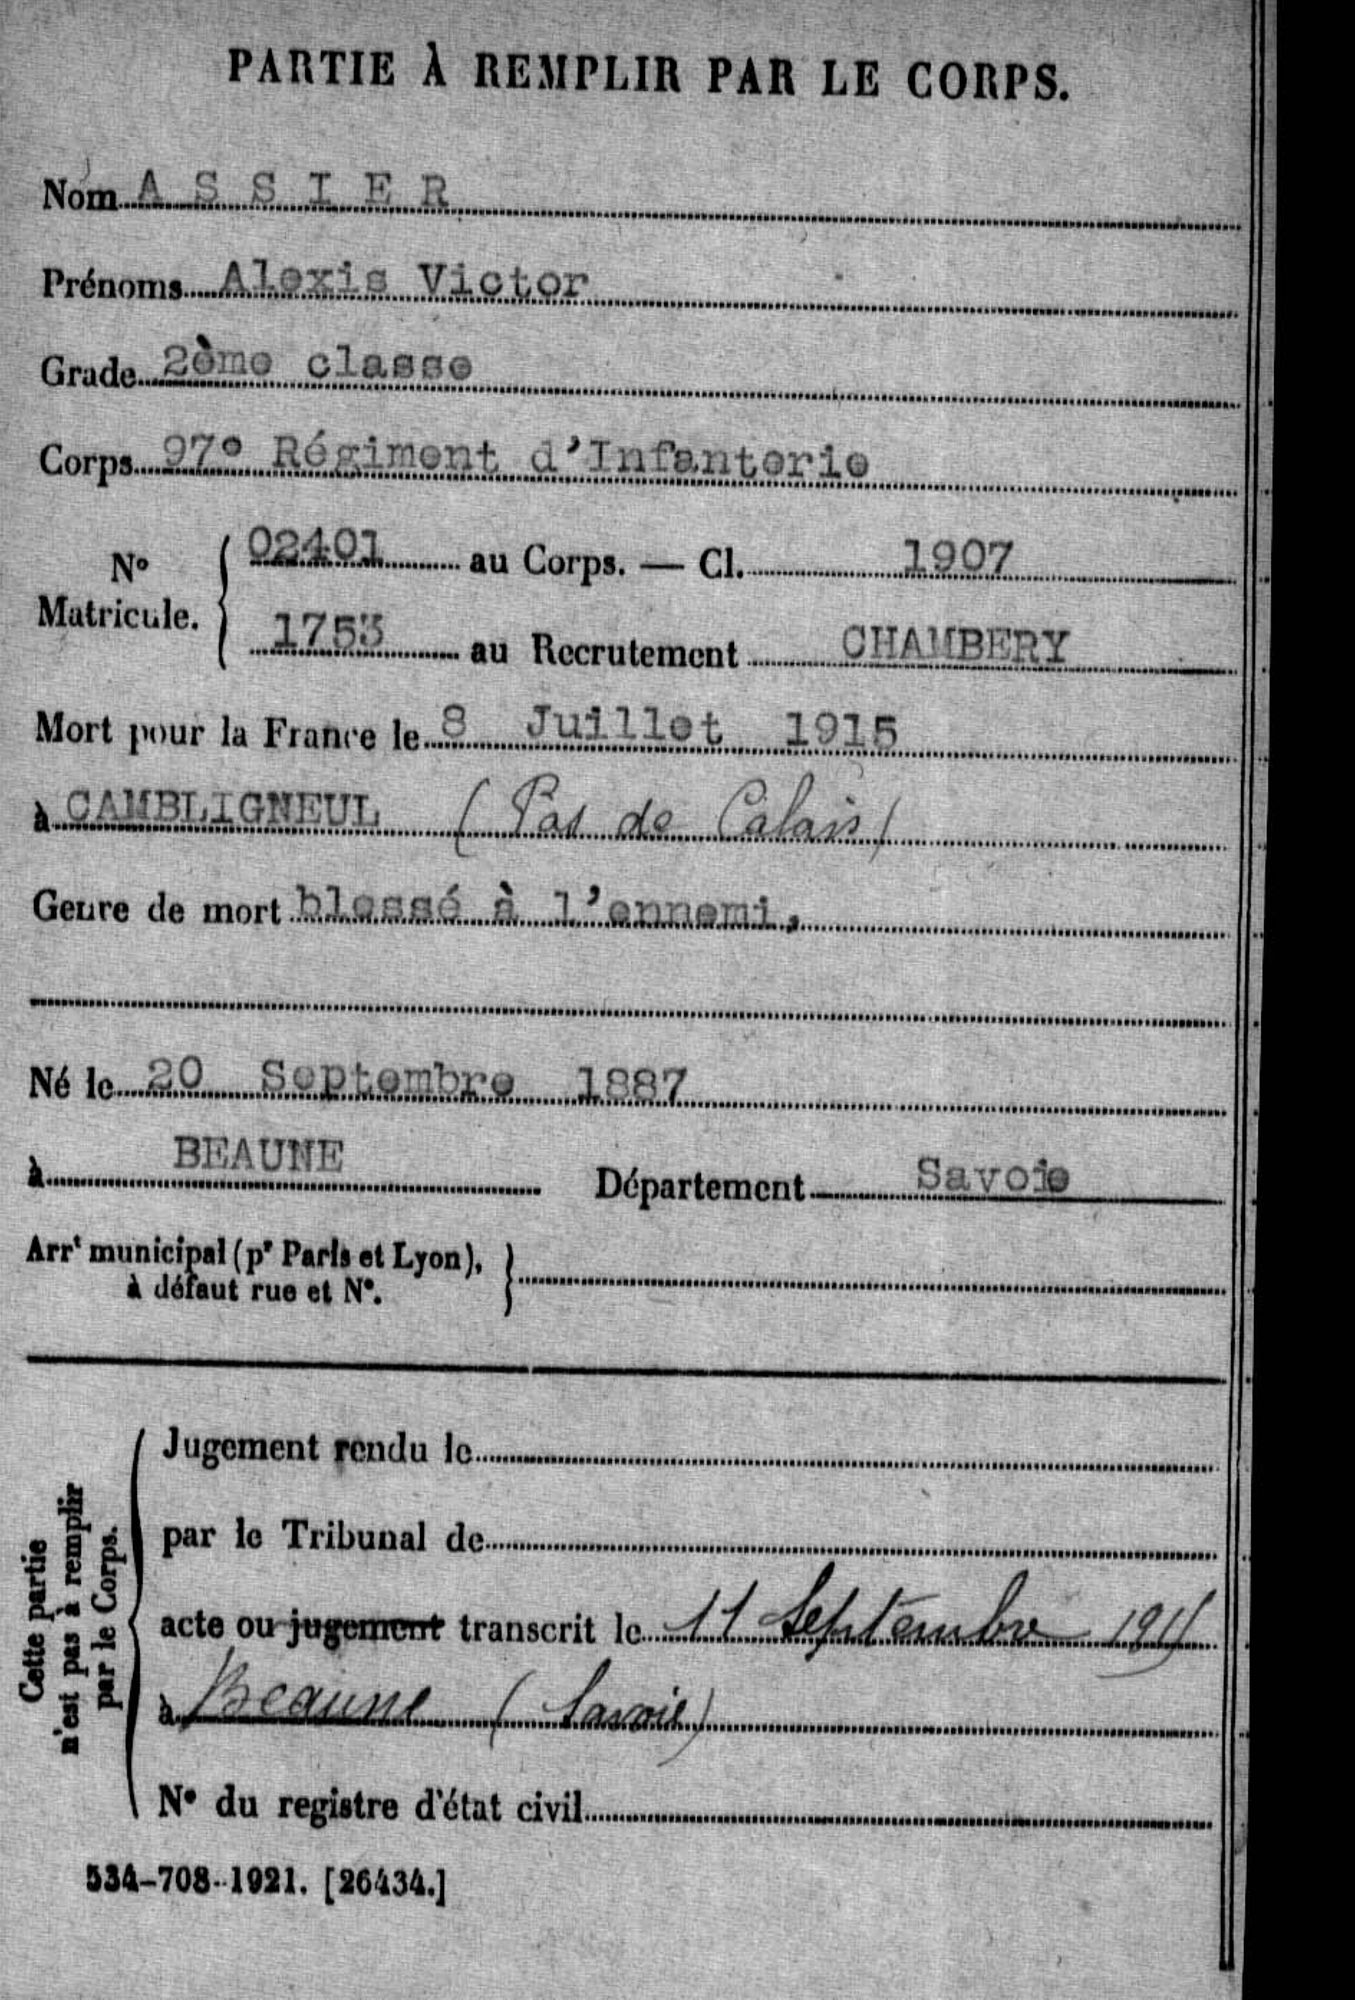 PARTIE À REMPLIR PAR LE CORPS.
Nom ASSIER
Prénoms Alexis Victor
Grade 2ème classe
Corps 97e Régiment d'Infanterie
No Matricule. 02401 au Corps. — Cl. 1907
1753 au Recrutement CHAMBERY
Mort pour la France le 8 Juillet 1915
à CAMBLIGNEUL (Pas de Calais)
Genre de mort blessé à l'ennemi,
Né le 20 Septembre 1887
à BEAUNE Département Savoie
Arrt municipal (pr Paris et Lyon),
à défaut rue et No.
Cette partie
n'est pas à remplir
par le Corps.
Jugement rendu le
par le Tribunal de
acte ou jugement transcrit le 11 Septembre
à Beaune (Savoie)
No du registre d'état civil
534-708-1921. [26434.]